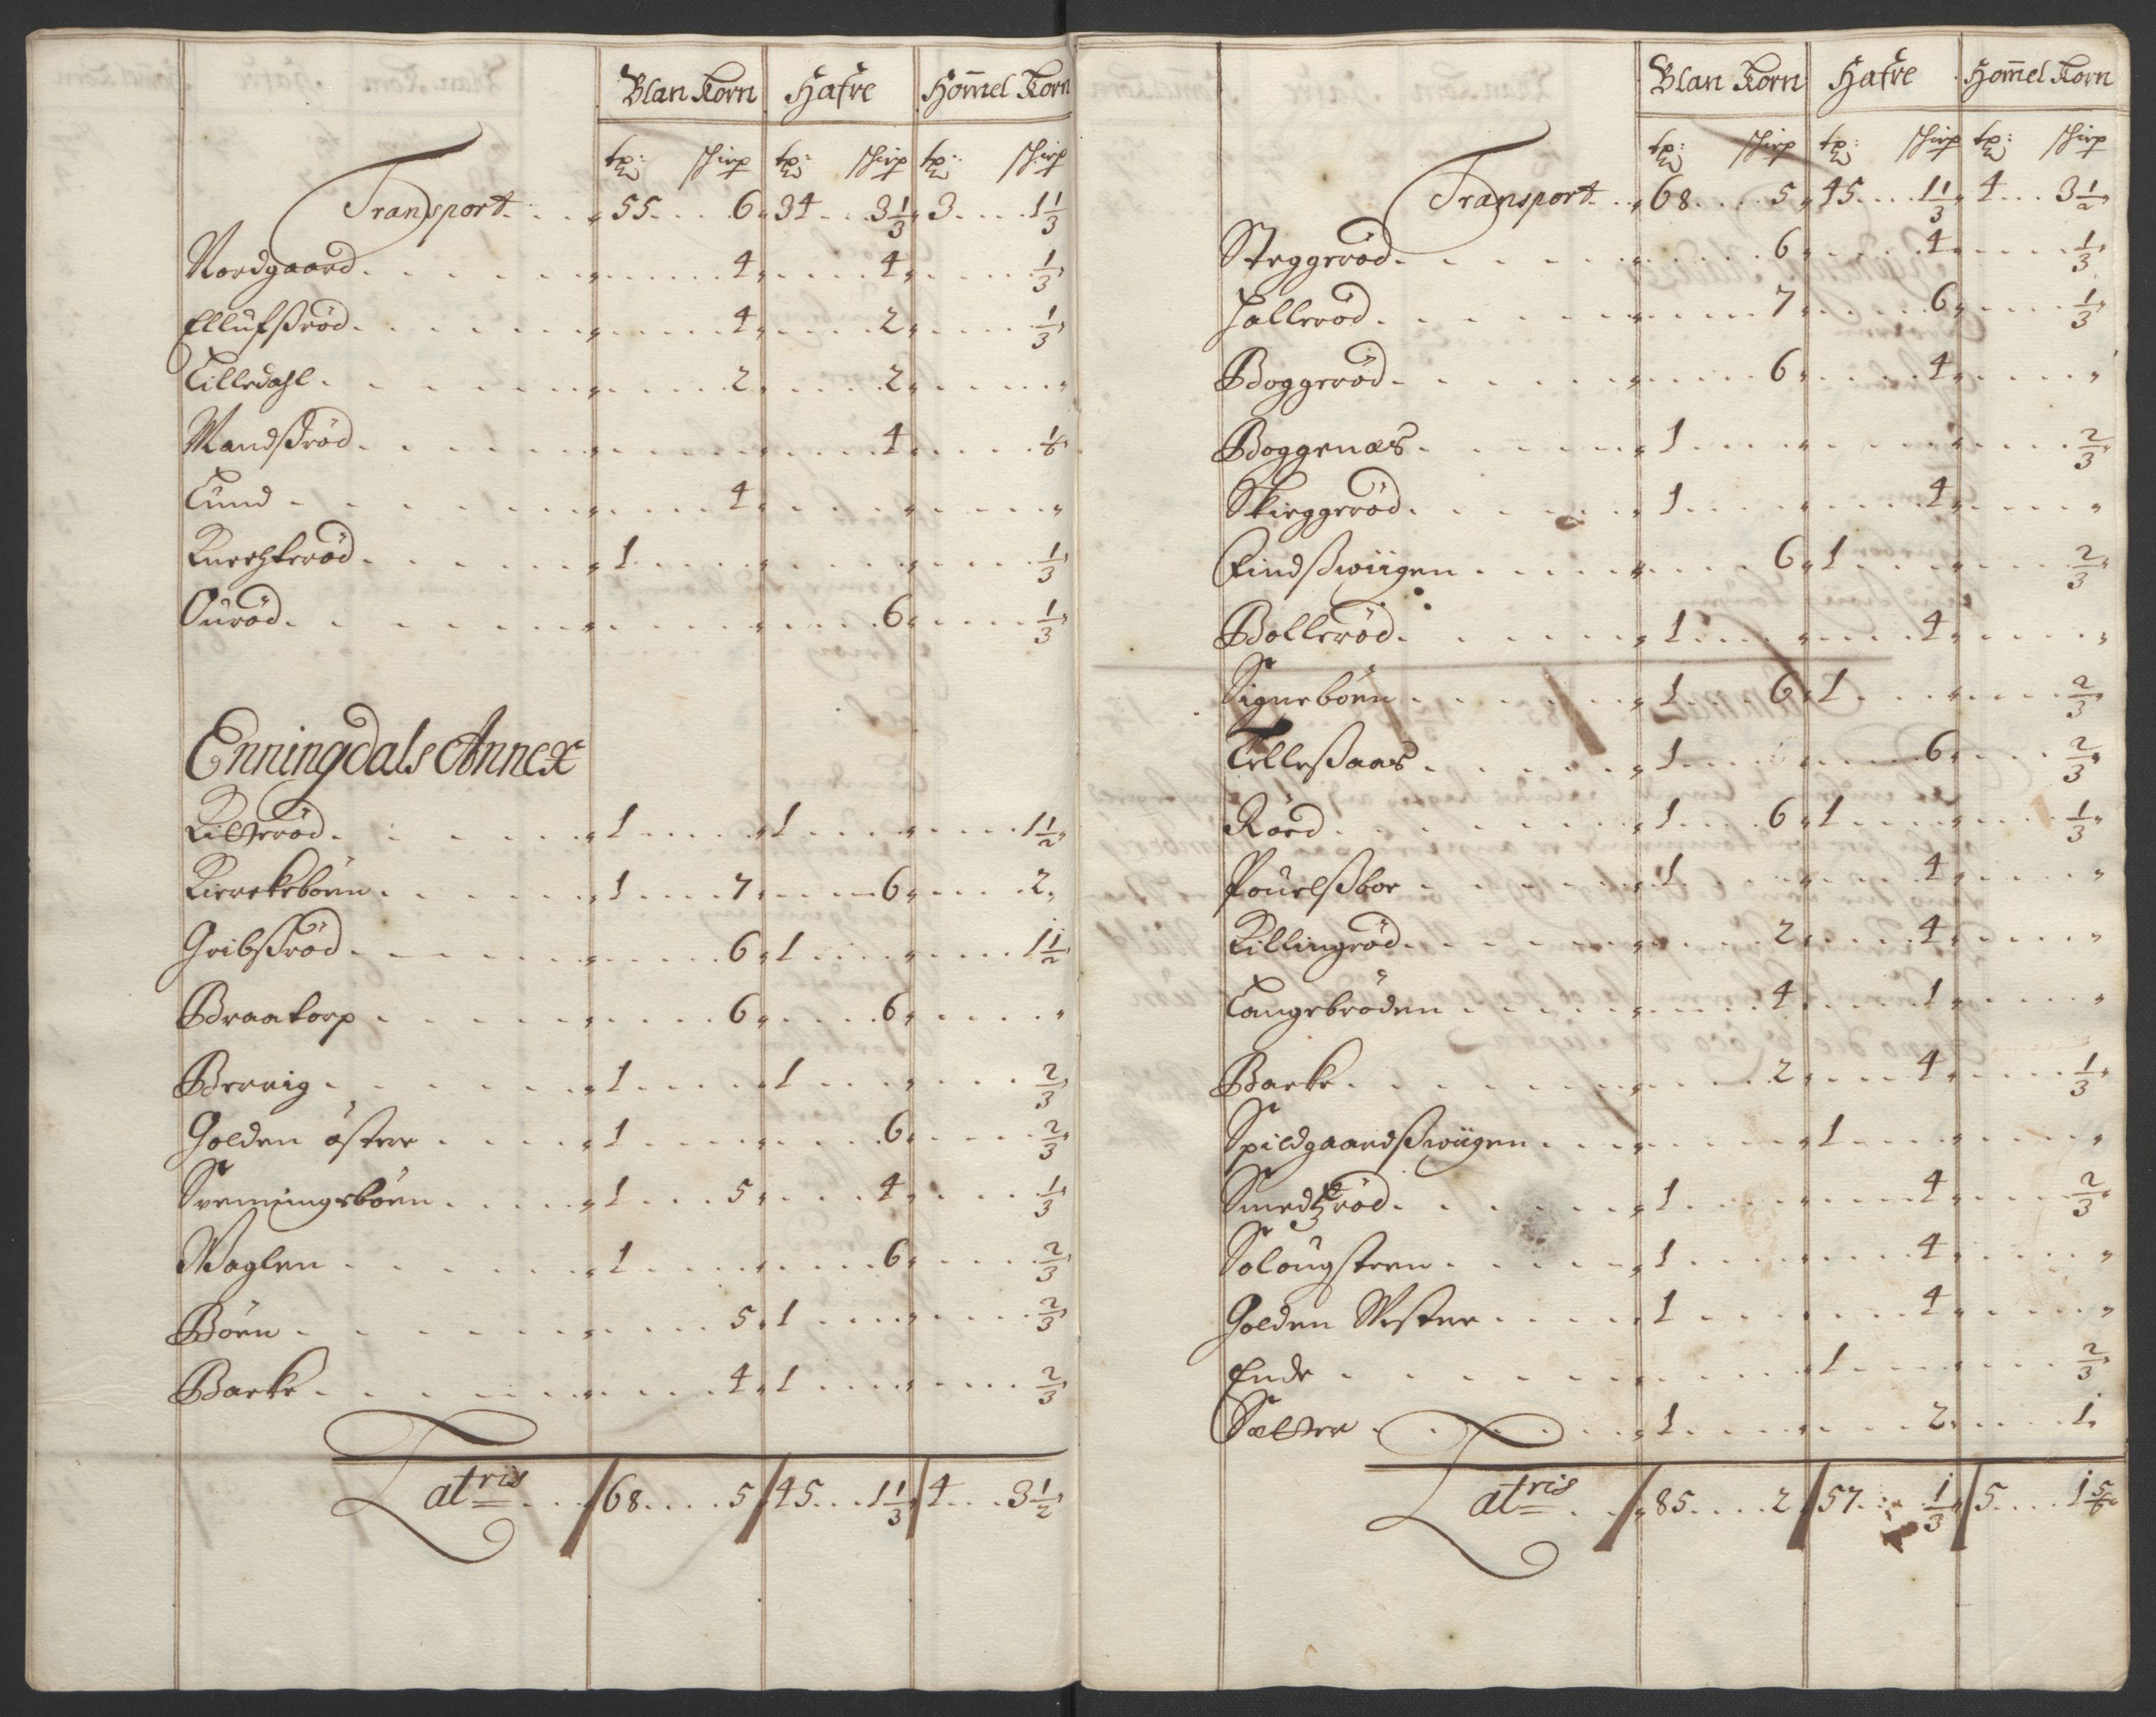 Blan Korn Hafre Hom̄el Korn
tp: schiep tp: schiep tp: schiep
Transport 55 6 34 3 1/3 3 1 1/3
Nordgaard 4 4 1/3
Ellufsrød 4 2 1/3
Lilledahl 2 2
Mandsrød 4 1/6
Lund 4
Knechterød 1 1/3
Ourød 6 1/3
Enningdals Annex
Kitterød 1 1 1 1/2
Kirrekebøen 1 7 6 2
Gribsrød 6 1 1 1/2
Braatorp 6 6
Berrvig 1 1 2/3
Holden østere 1 6 2/3
Svenningsbøen 1 5 4 1/3
Waglen 1 6 2/3
Bøen 5 1 2/3
Barke 4 1 2/3
Latris 68 5 45 1 1/3 4 3 1/2
Blan Korn Hafre Hom̄el Korn
tp: schiep tp: schiep tp: schiep
Transport 68 5 45 1 1/3 4 3 1/2
Steggerød 6 4 1/3
Hallerød 7 6 1/3
Boggerød 6 4
Boggenæs 1 2/3
Skieggerød 1 4
Findswiigen 6 1 2/3
Bollerød 1 4
Signebøen 1 6 1 2/3
Tellesaas 1 6 2/3
Rørd 1 6 1 1/3
Pouelsboe 1 4
Killingrød 2 4
Langebrøden 4 1
Barke 2 4 1/3
Spildgaardswiigen 1
Smedsrød 1 4 2/3
Soløugsteen 1 4
Holden Westre 1 4
Ende 1 2/3
Sætter 1 2 1
Latris 85 2 57 1/3 5 1 5/6